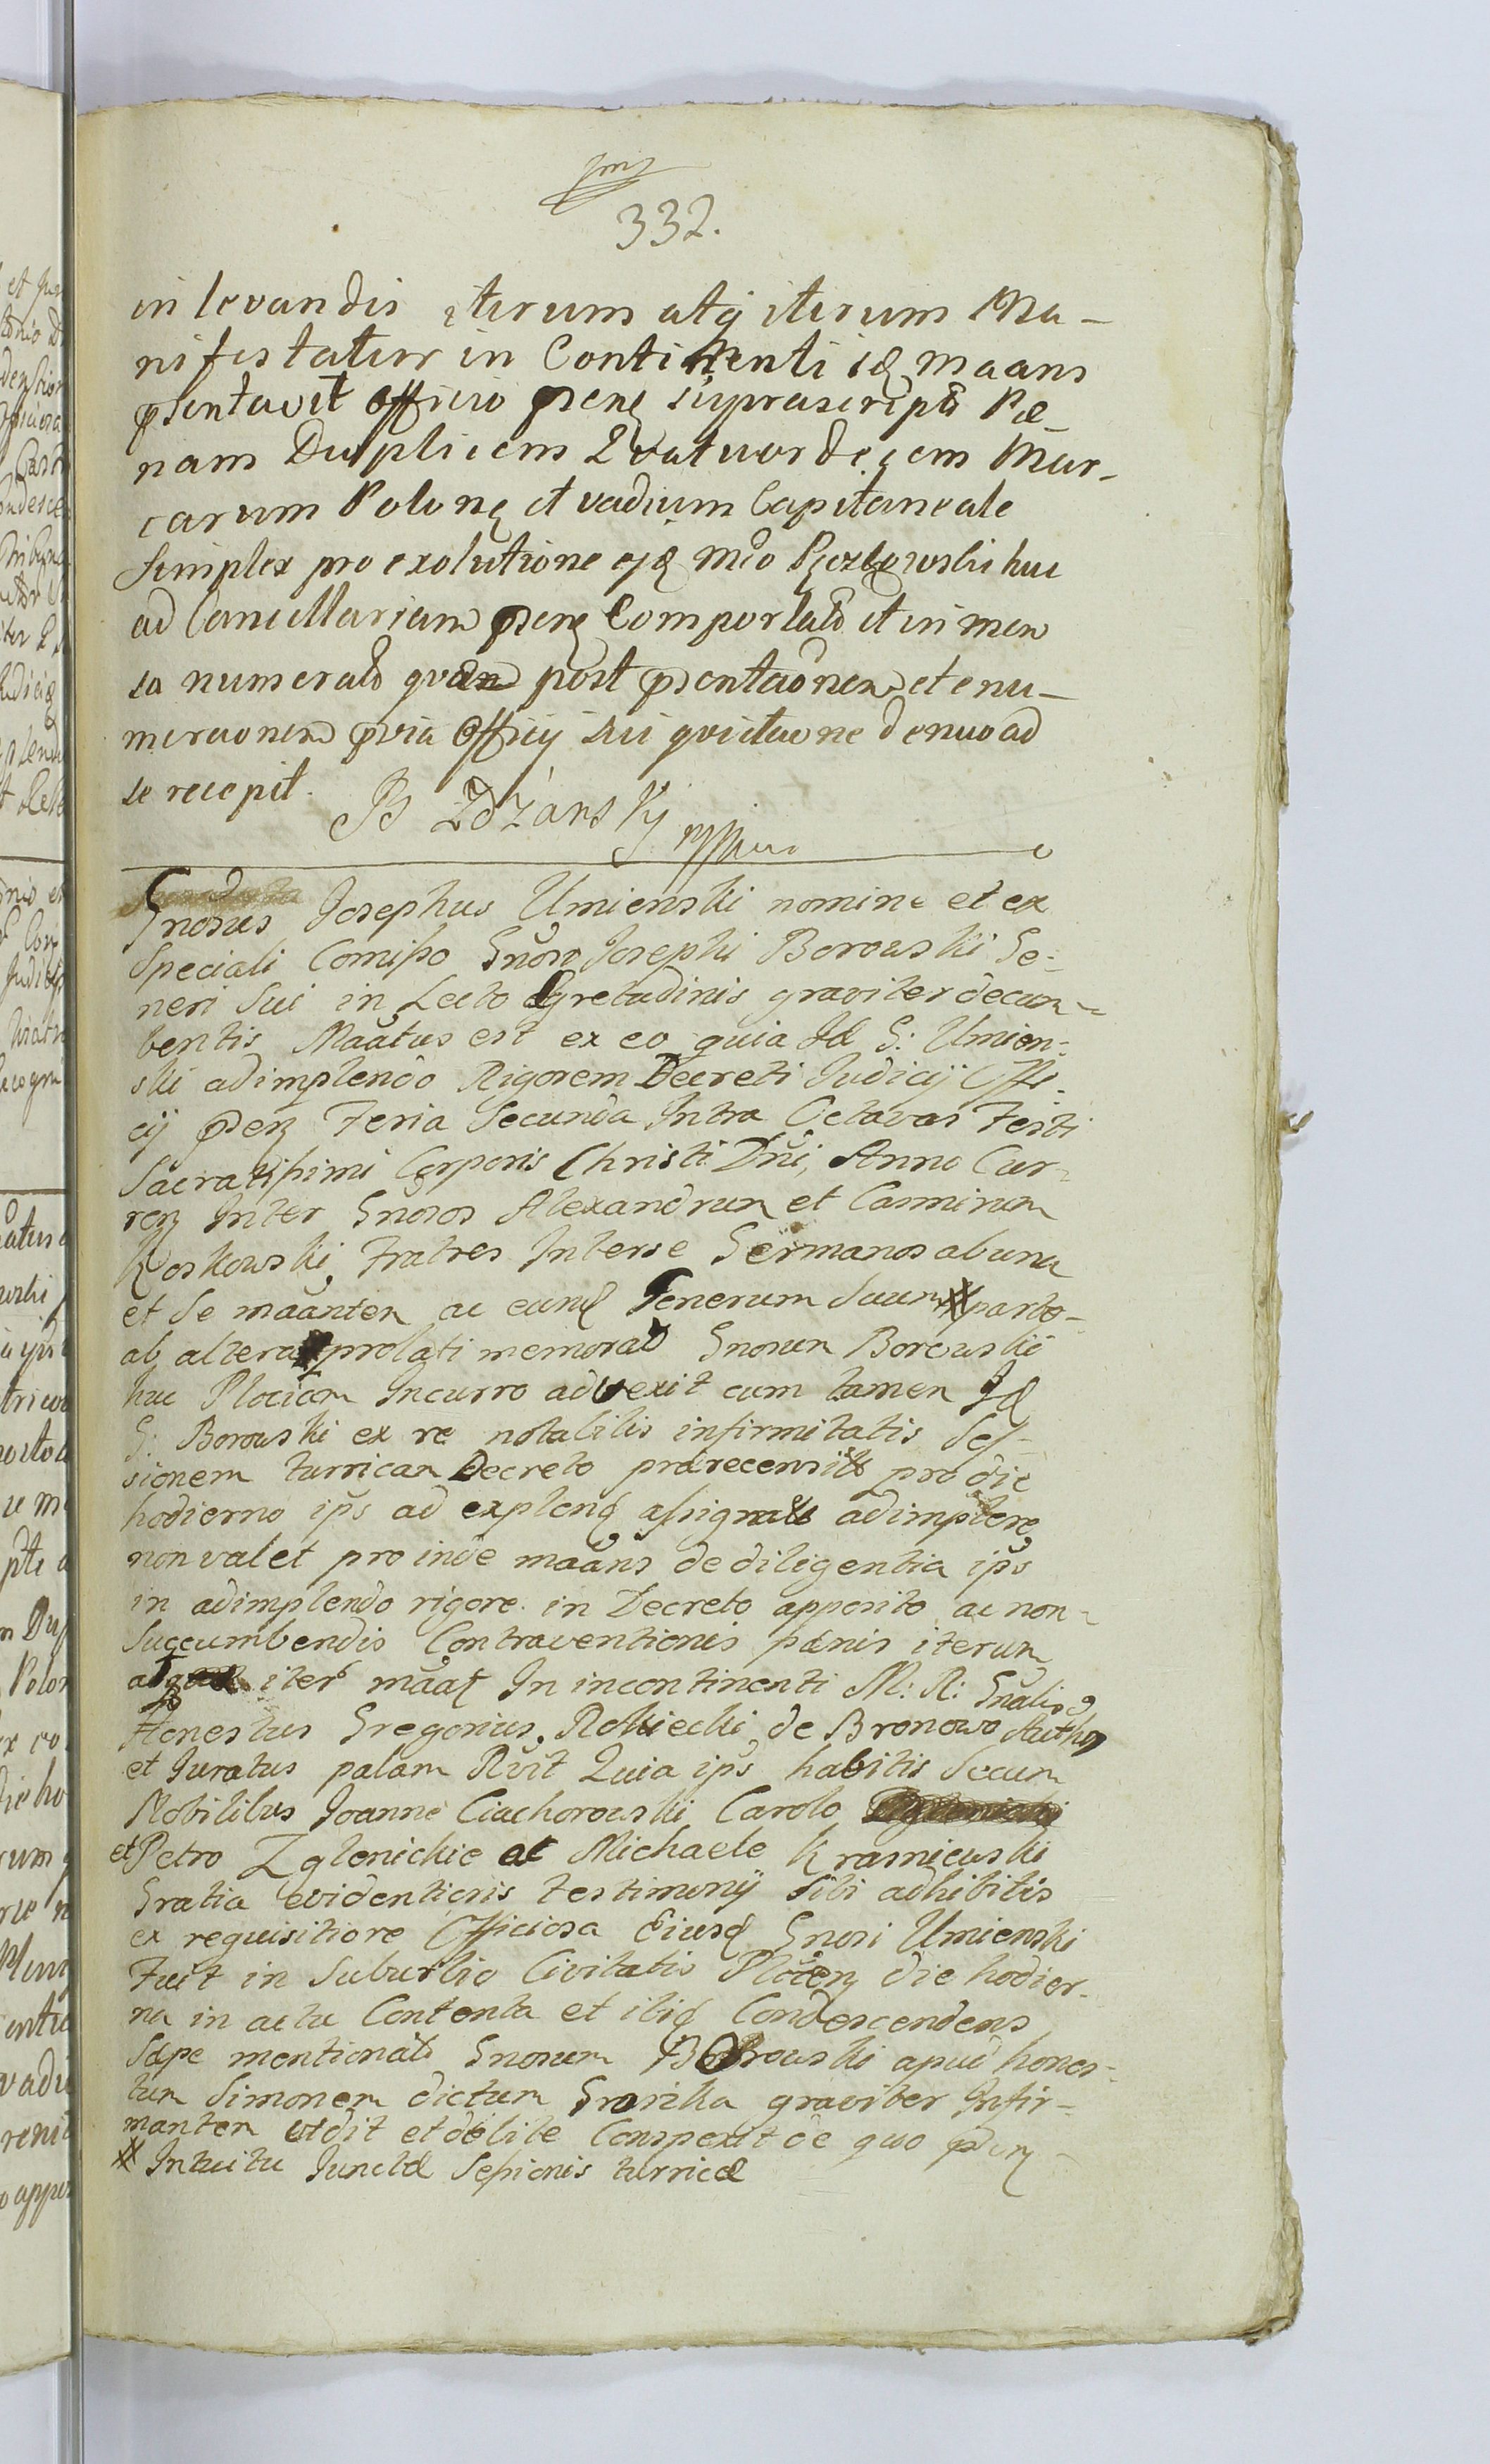 332.
in levandis iterum atq iterum Ma-
nifestatur in Continenti idq maans
psentavit Officio psenq suprascripta Pæ-
nam Duplicem Quatuordecem Mar-
carum Polonq et vadium Capitaneale
Simplex pro exolutione ejq mco huc
ad Cancellariam psenq Comportato et in men
sa numerato quam post psentaonem et enu-
meraonem pvia Officij sui quitaone denuo ad
se recepit.
Zdżarsky
Gnosus Josephus Umienski nomine et ex
Speciali Comisso Gnosi Josephi Borowski Ge-
neri Sui in Lecto Ægretudinis graviter decum-
bentis Maatus est ex eo quia Id G: Umien-
ski adimplendo Rigorem Decreti Judicij Offi-
cij psen Feria Secunda Intra Octavas Festi
Sacratissimi Corporis Christi Dni, Anno Cur-
ren Inter Gnosos Alexandrum et Casmirum
Koskowski Fratres Interse Germanos ab una
et Se maantem ac eund Generum Suum # parte
ab altera prolati memorat Gnosum Borowski
huc Plociam Incurro advexit cum tamen Id
G: Borowski ex re notabilis infirmitatis Ses-
sionem turricam Decreto prærecensito pro die
hodierno ips ad explend assignata adimplere
non valet pro inde maans de diligentia ips
in adimplendo rigore in Decreto apposito ac non-
Succumbendis Contraventionis pænis iterum
atq iter maat In incontinenti M: R: Gnalis
Honestus Gregorius Rokiecki de Bronowo Authen
et Juratus palam Rvit Quia ips habitis Secum
Nobilibus Joanne Ciachorowski Carolo
et Petro Zglenickie et Michaele Krasnicwski
Gratia evidentioris testimonij Sibi adhibitis
ex requisitione Officiosa Eiusd Gnosi Umienski
Fuit in Suburbio Civitatis Plocen die hodier-
na in actu Contenta et ibiq Condescendens
Sæpe mentionato Gnosum Borowski apud hones-
tum Simonem dictum graviter Infir-
mantem vidit et debite Conspexit de quo
# Intuitu Junctæ Sessionis turricæ